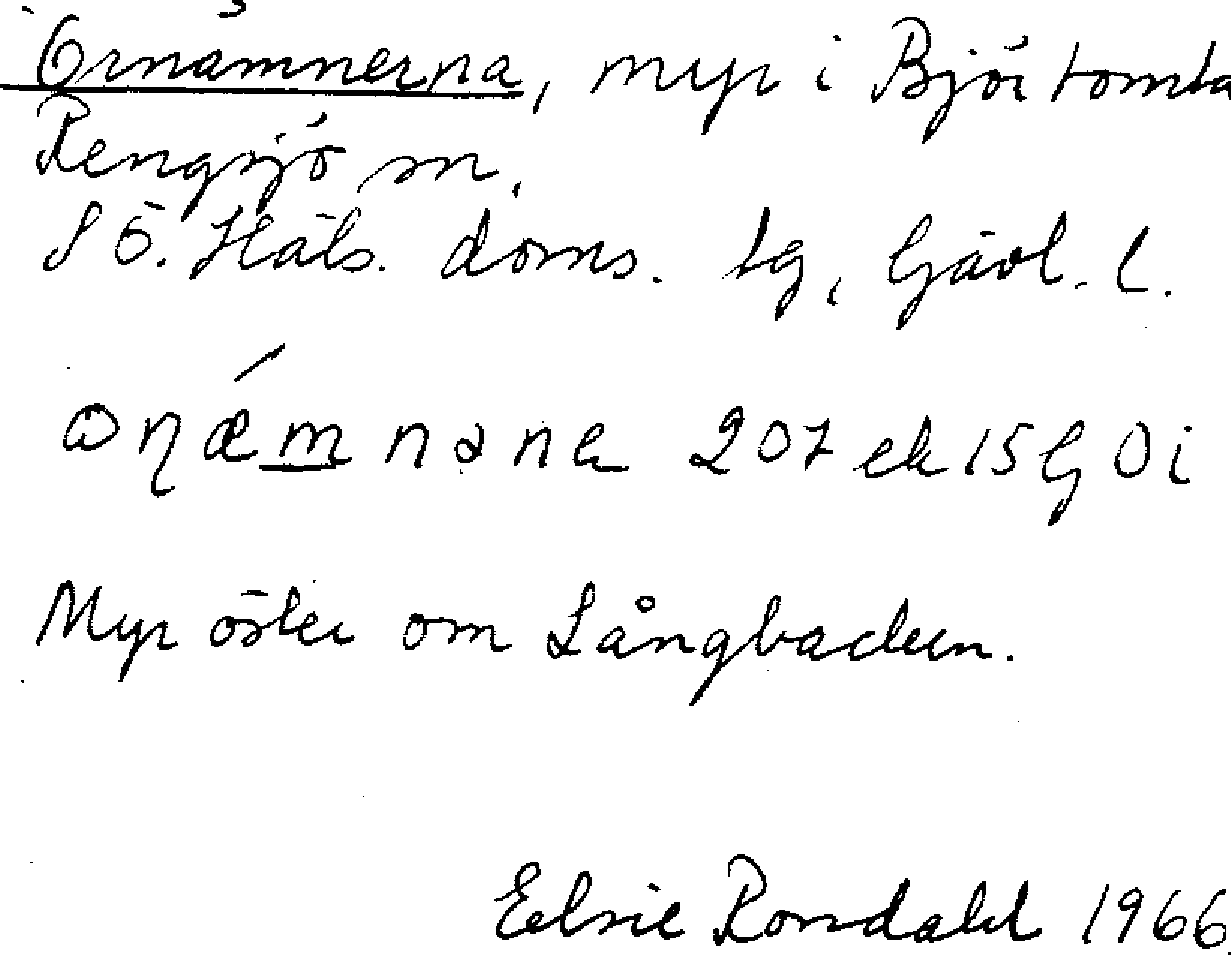 Örnämnerna, myr i Björtomta
Rengsjö sn.
S Ö. Häls. doms. tg, Gävl. l.
ωɳǽm̲nɘna 207 ek 15 G 0 i
Myr öster om Långbacken.
Elsie Rondahl 1966.